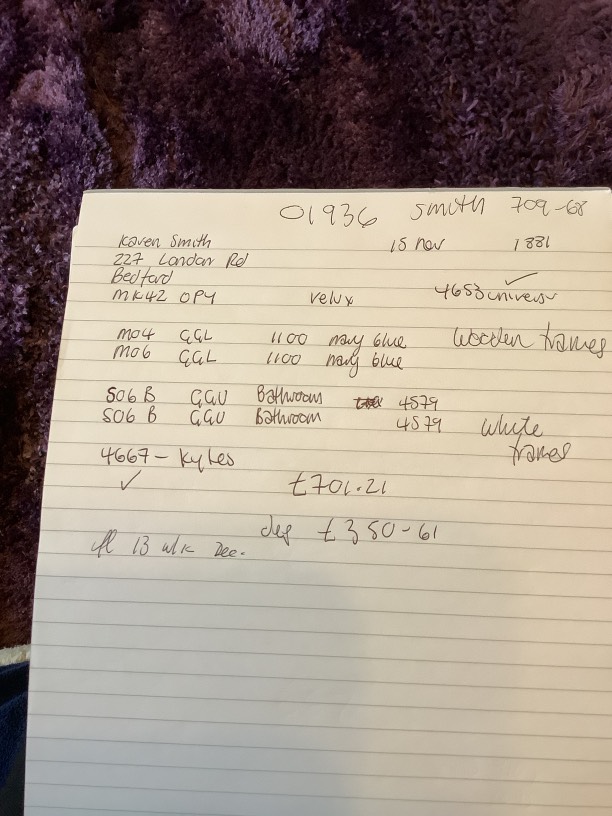 01936 Smith 709-68
Karen Smith 15 Nov 1881
227 London Rd
Bedford
MK42 0PY Velux 4653 univers
M04 GGL 1100 navy blue Wooden frames
M06 GGL 1100 navy blue
S06 B GGU Bathroom 4579
S06 B GGU Bathroom 4579 White frames
4667 - Kyles
£701.21
dep £350-61
13 wk Dec.